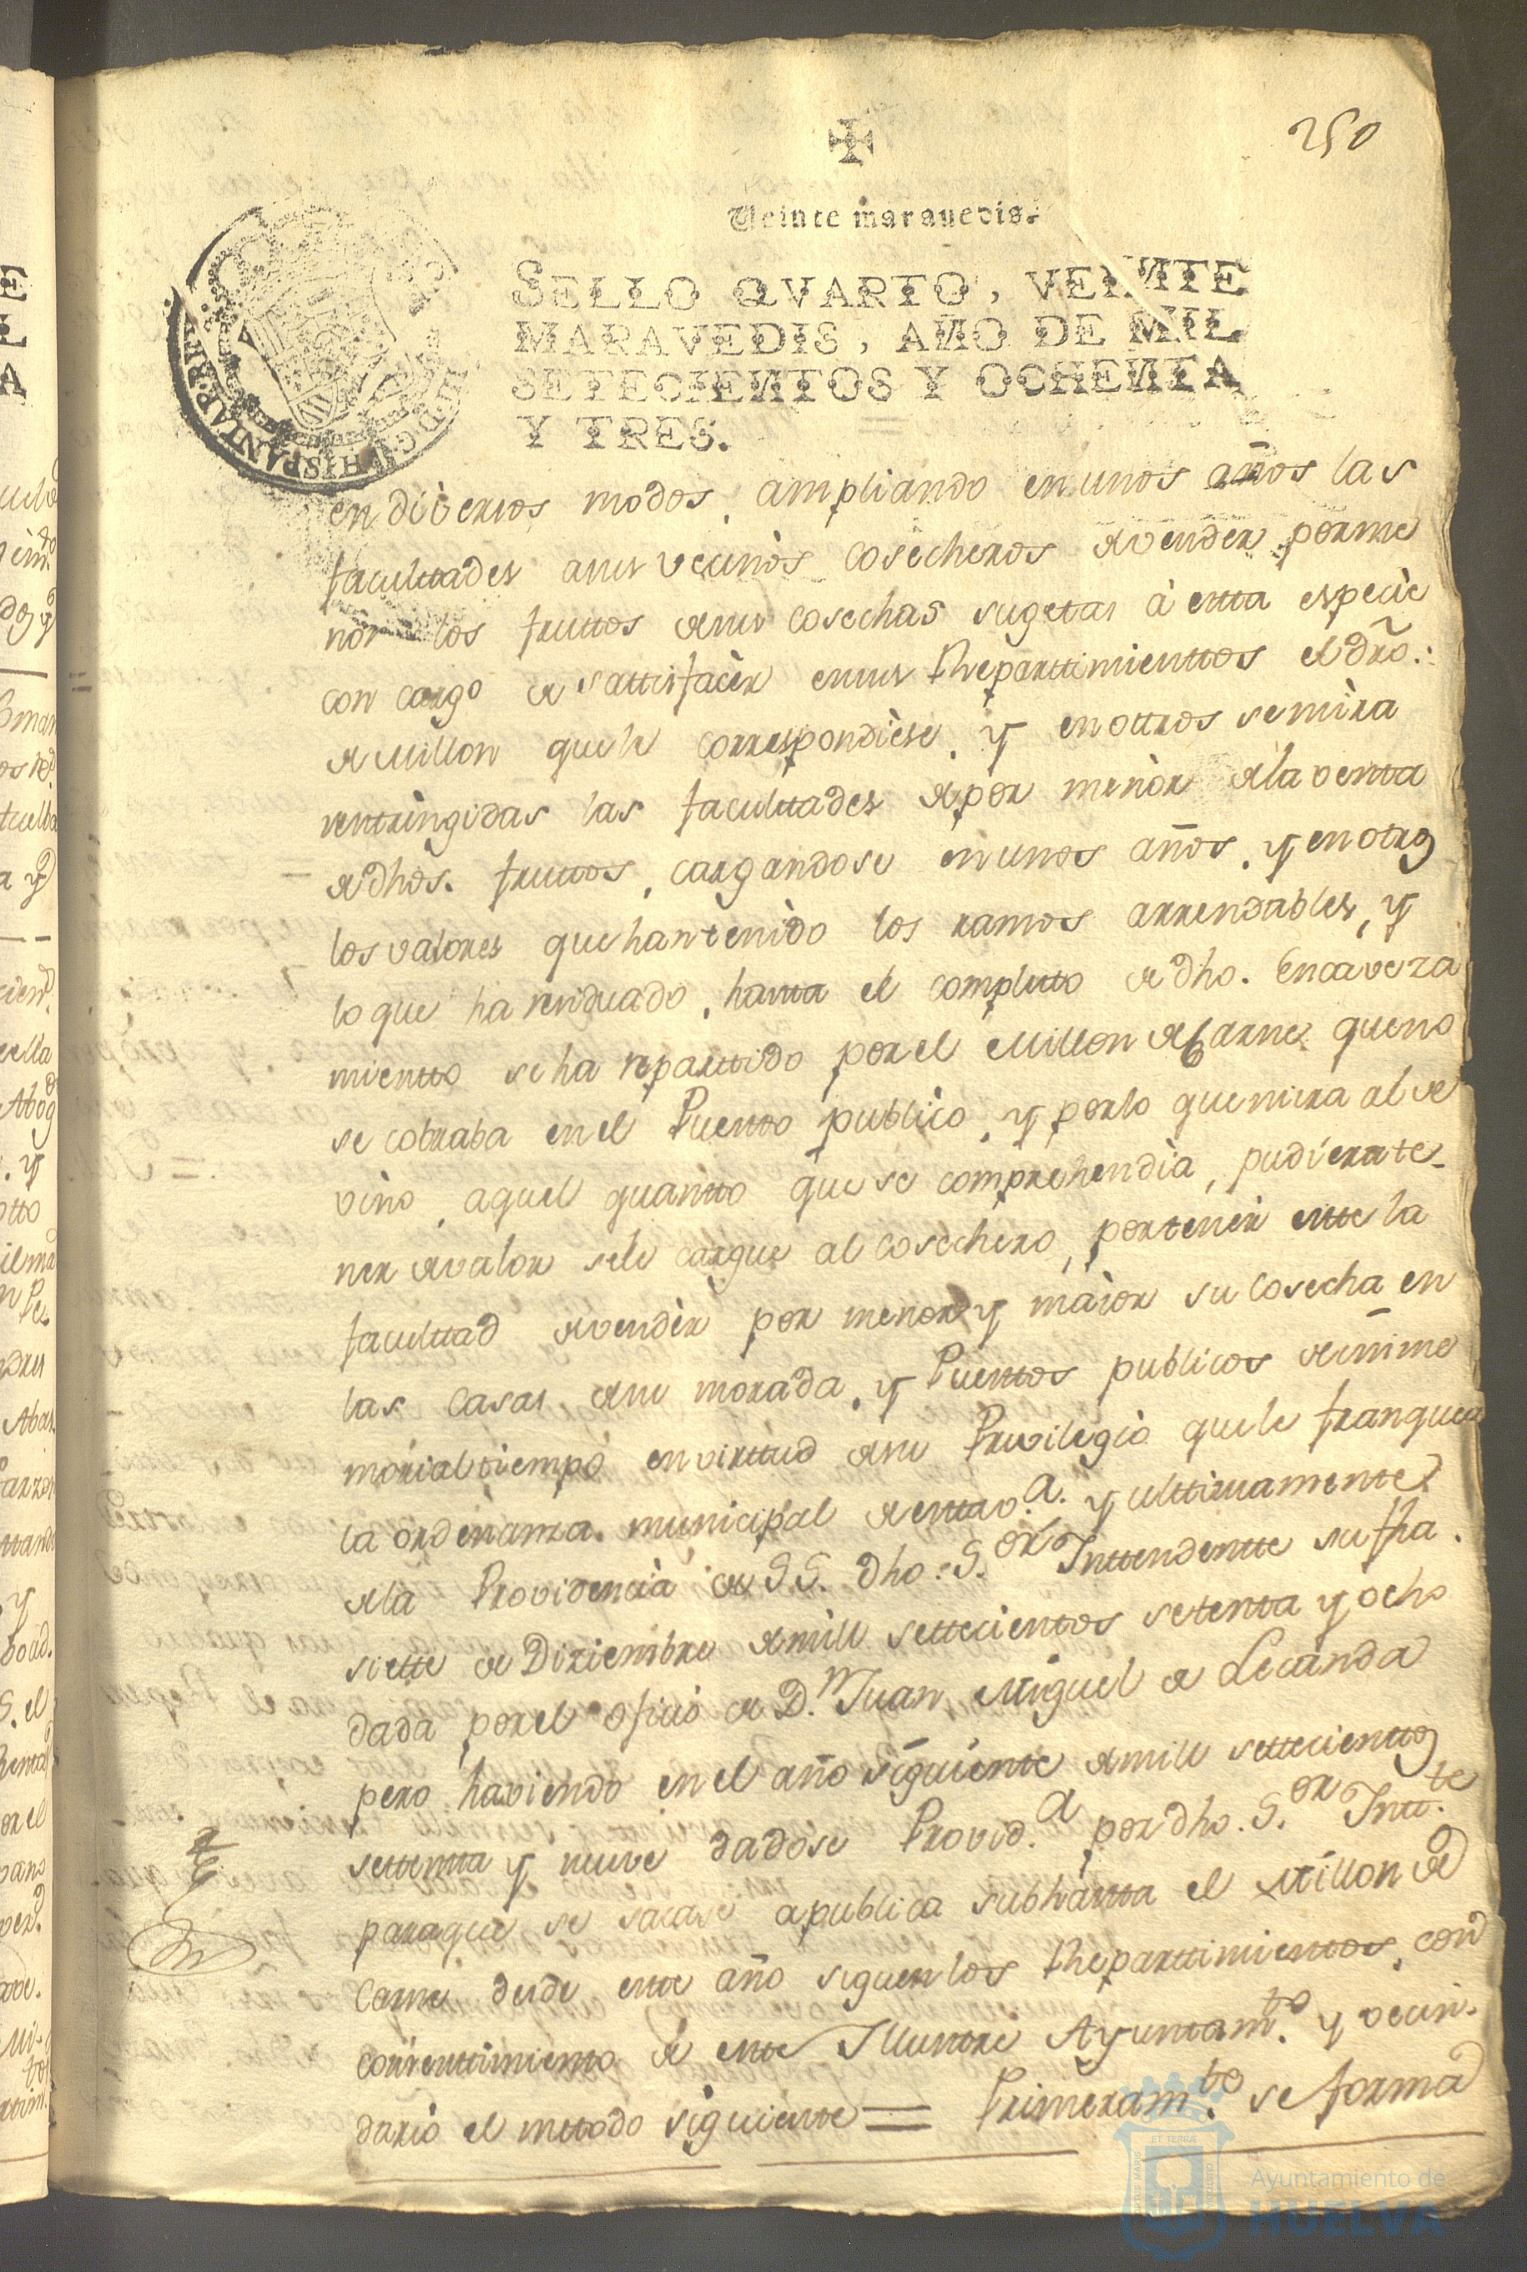 250
Veinte maravedis.
SELLO QVARTO, VEINTE
MARAVEDIS, AÑO DE MIL
SETECIENTOS Y OCHENTA
Y TRES.
HISPANIAR
en diversos modos, ampliando en unos años las
facultades asus vecinos cosecheros de vender por me
nòr los fruttos desus cosechas sugetas à esta especie
con cargo de sattisfacèr ensus Repartimienttos el dro.:
de Millon que le correspondièse, y en ottros se mira
restringidas las facultades de por menòr de la venta
de dhos. fruttos, cargandose en unos años, y en otros
los valores que han tenido los ramos arrendables, y
lo que ha residuado, hasta el complutto de dho. Encaveza
mientto se ha repartido por el Millon de Carne que no
se cobraba en el Puesto publico, y por lo que mira al de
vino, aquel quantto que se comprehendia, pudiera te-
ner de valor sele cargue al cosechero, por tener este la
facultad de vendèr por menor y maior su cosecha en
las casas desu morada, y Puestos publicos de inme
morial tiempo en virtud desu Privilegio que le franquea
la ordenanza municipal de esta v.a y ulttimamente
de la Providencia de SS. dho. S.or Inttendentte su fha.
siette de Diziembre de mill settecientos setenta y ocho
dada por el oficio de D.n Juan Miguel de Lecanda
pero haviendo en el año siguiente de mill settecienttos
settenta y nueve dadose Provid.a por dho. S.or Intt.te
paraque se sacase a publica subhasta el Millon de
Carne desde este año siguen los Repartimientos, con
consenttimiento de este Illustre Ayuntam.to y vecin-
dario el mettodo siguiente = Primeram.te se forma
ET TERRAE
Ayuntamiento de
HUELVA